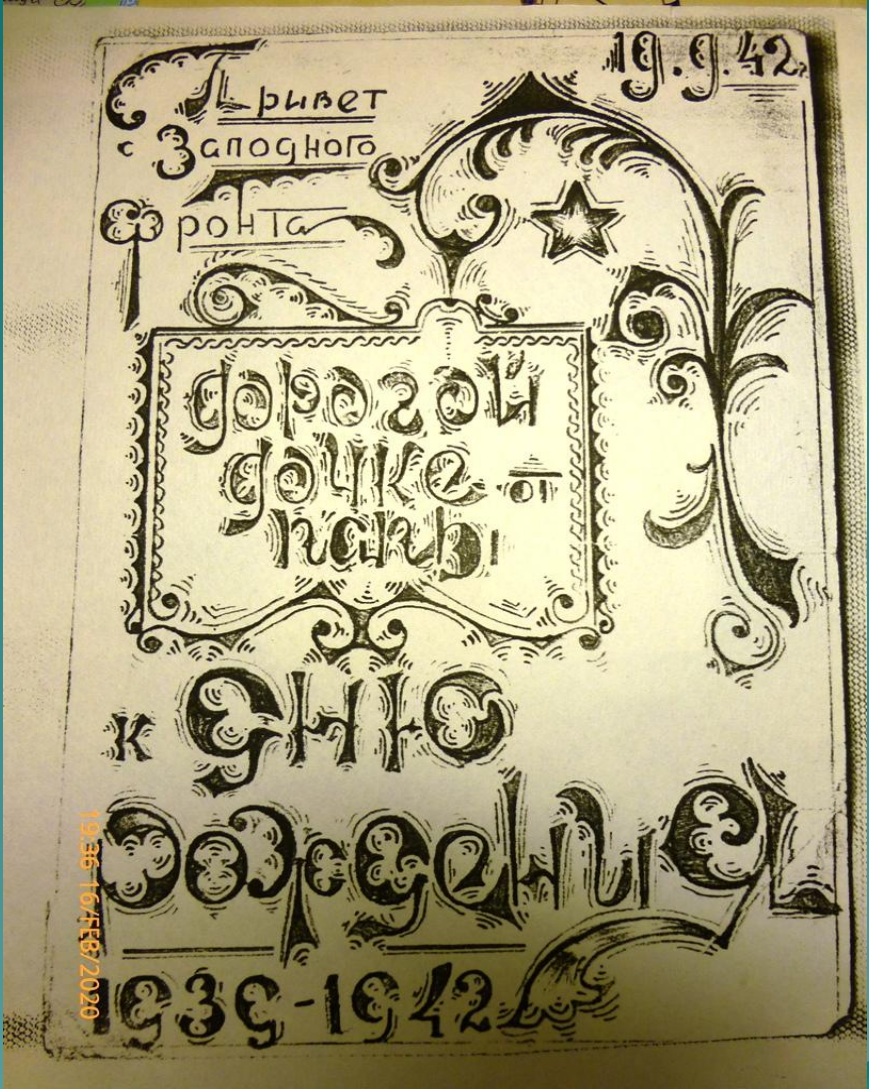 19.9.42г.
Привет
с Заподного
Фронта
дорогой
дочке - от
папы
к дню
рождения
1939-1942
19:36 16/FEB/2020